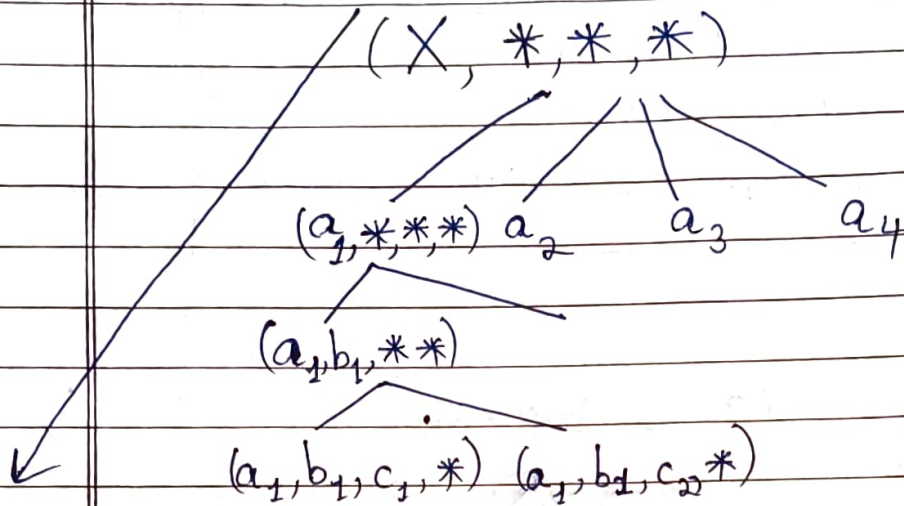 (X, *, *, *)
(a₁, *, *, *) a₂ a₃ a₄
(a₁, b₁, * *)
(a₁, b₁, c₁, *) (a₁, b₁, c₂, *)